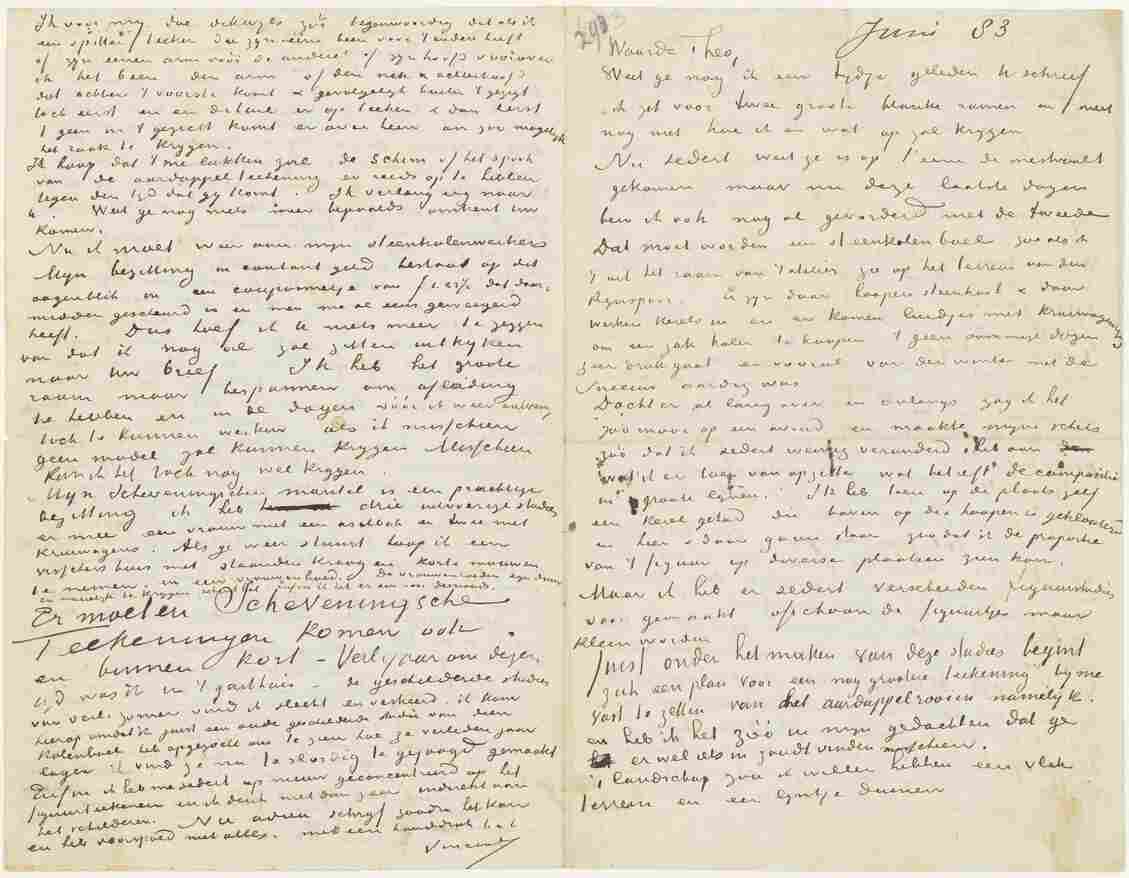 Ik voor my doe dikwyls zelfs tegenwoordig dit als ik
een spitter teeken die zyn eene been voor t andere heeft
of zyn eenen arm vóór de andere of zyn hoofd voorover
ik het been den arm of den nek & achterhoofd
dat achter t voorste komt & gevolgelijk buiten t gezigt
toch eerst en en deluil er op teeken & dan eerst
t geen in t gezigt komt er over heen om zoo mogelijk
het raak te krygen.
Ik hoop dat t me lukken zal de schim of het spook
van de aardappelteekening er reeds op te hebben
tegen den tyd dat gy komt. Ik verlang erg naar
U. Weet ge nog niets meer bepaalds omtrent Uw
komen.
Nu ik moet weer aan mijn steenkolenwerkers
Mijn bezitting in contant geld bestaat op dit
oogenblik in een couponnetje van f1.23½ dat door
midden gescheurd is en men me al eens geweigerd
heeft. Dus hoef ik U niets meer te zeggen
van dat ik nog al zal zitten uitkyken
naar Uw brief Ik heb het groote
raam maar bespannen om afleiding
te hebben en in de dagen vóór ik weer ontvang
toch te kunnen werken als ik misschien
geen model zal kunnen krygen Misschien
kan ik het toch nog wel krygen.
Mijn Scheveningschen mantel is een prachtige
bezitting ik heb drie uitvoerige studies
er mee een vrouw met een aschbak en twee met
kruiwagens. Als ge weer stuurt hoop ik een
visschersbuis met staanden kraag en korte mouwen
te nemen. en een vrouwenhoed. De vrouwenhoeden zyn duur
en moeielyk te krygen
Er moeten Scheveningsche
Teekeningen komen ook
en binnen kort – Verl. jaar om dezen
tyd was ik in t gasthuis – de geschilderde studies
van verl. zomer vind ik slecht en verkeerd. ik kom
hierop omdat ik juist een oude geschilderde studie van dien
kolenboel heb opgezocht om te zien hoe ze verleden jaar
lagen ik vind ze nu te slordig te gejaagd gemaakt
Enfin ik heb me sedert op nieuw geconcentreerd op het
figuurteekenen en ik denk niet dan zeer indirect aan
het schilderen. Nu adieu schryf zoodra het kan
en heb voorspoed met alles. met een handdruk t. à t.
Vincent
298
Juni 83
Waarde Theo,
Weet ge nog ik een tydje geleden U schreef
ik zit voor twee groote blanke ramen en weet
nog niet hoe ik en wat op zal krygen
Nu sedert weet ge is op t eene de mestvaalt
gekomen maar nu deze laatste dagen
ben ik ook nog al gevorderd met de tweede
Dat moet worden een steenkolenboel zoo als ik
t uit het raam van t atelier zie op het terrein van den
Rynspoor. Er zyn daar hoopen steenkool & daar
werken kerels in en er komen liedjes met kruiwagentjes
om een zak kolen te koopen t geen sommige dagen
zeer druk gaat en vooral van den winter met de
sneeuw aardig was
Dacht er al lang over en onlangs zag ik het
zóó mooi op een avond en maakte mijn schets
zóó dat ik sedert weinig veranderd heb aan
wat ik er toen van opzette wat betreft de compositie
in groote lynen. Ik heb toen op de plaats zelf
een kerel gehad die boven op die hoopen is geklouterd
en hier & daar gaan staan zoo dat ik de proportie
van t figuur op diverse plaatsen zien kon.
Maar ik heb er sedert verscheiden figuurstudies
voor gemaakt ofschoon de figuurtjes maar
klein worden
Juist onder het maken van deze studies begint
zich een plan voor een nog grootere teekening by me
vast te zetten van het aardappelrooien namelijk.
en heb ik het zóó in mijn gedachten dat ge
er wel iets in zoudt vinden misschien.
t landschap zou ik willen hebben een vlak
terrein en een lyntje duinen